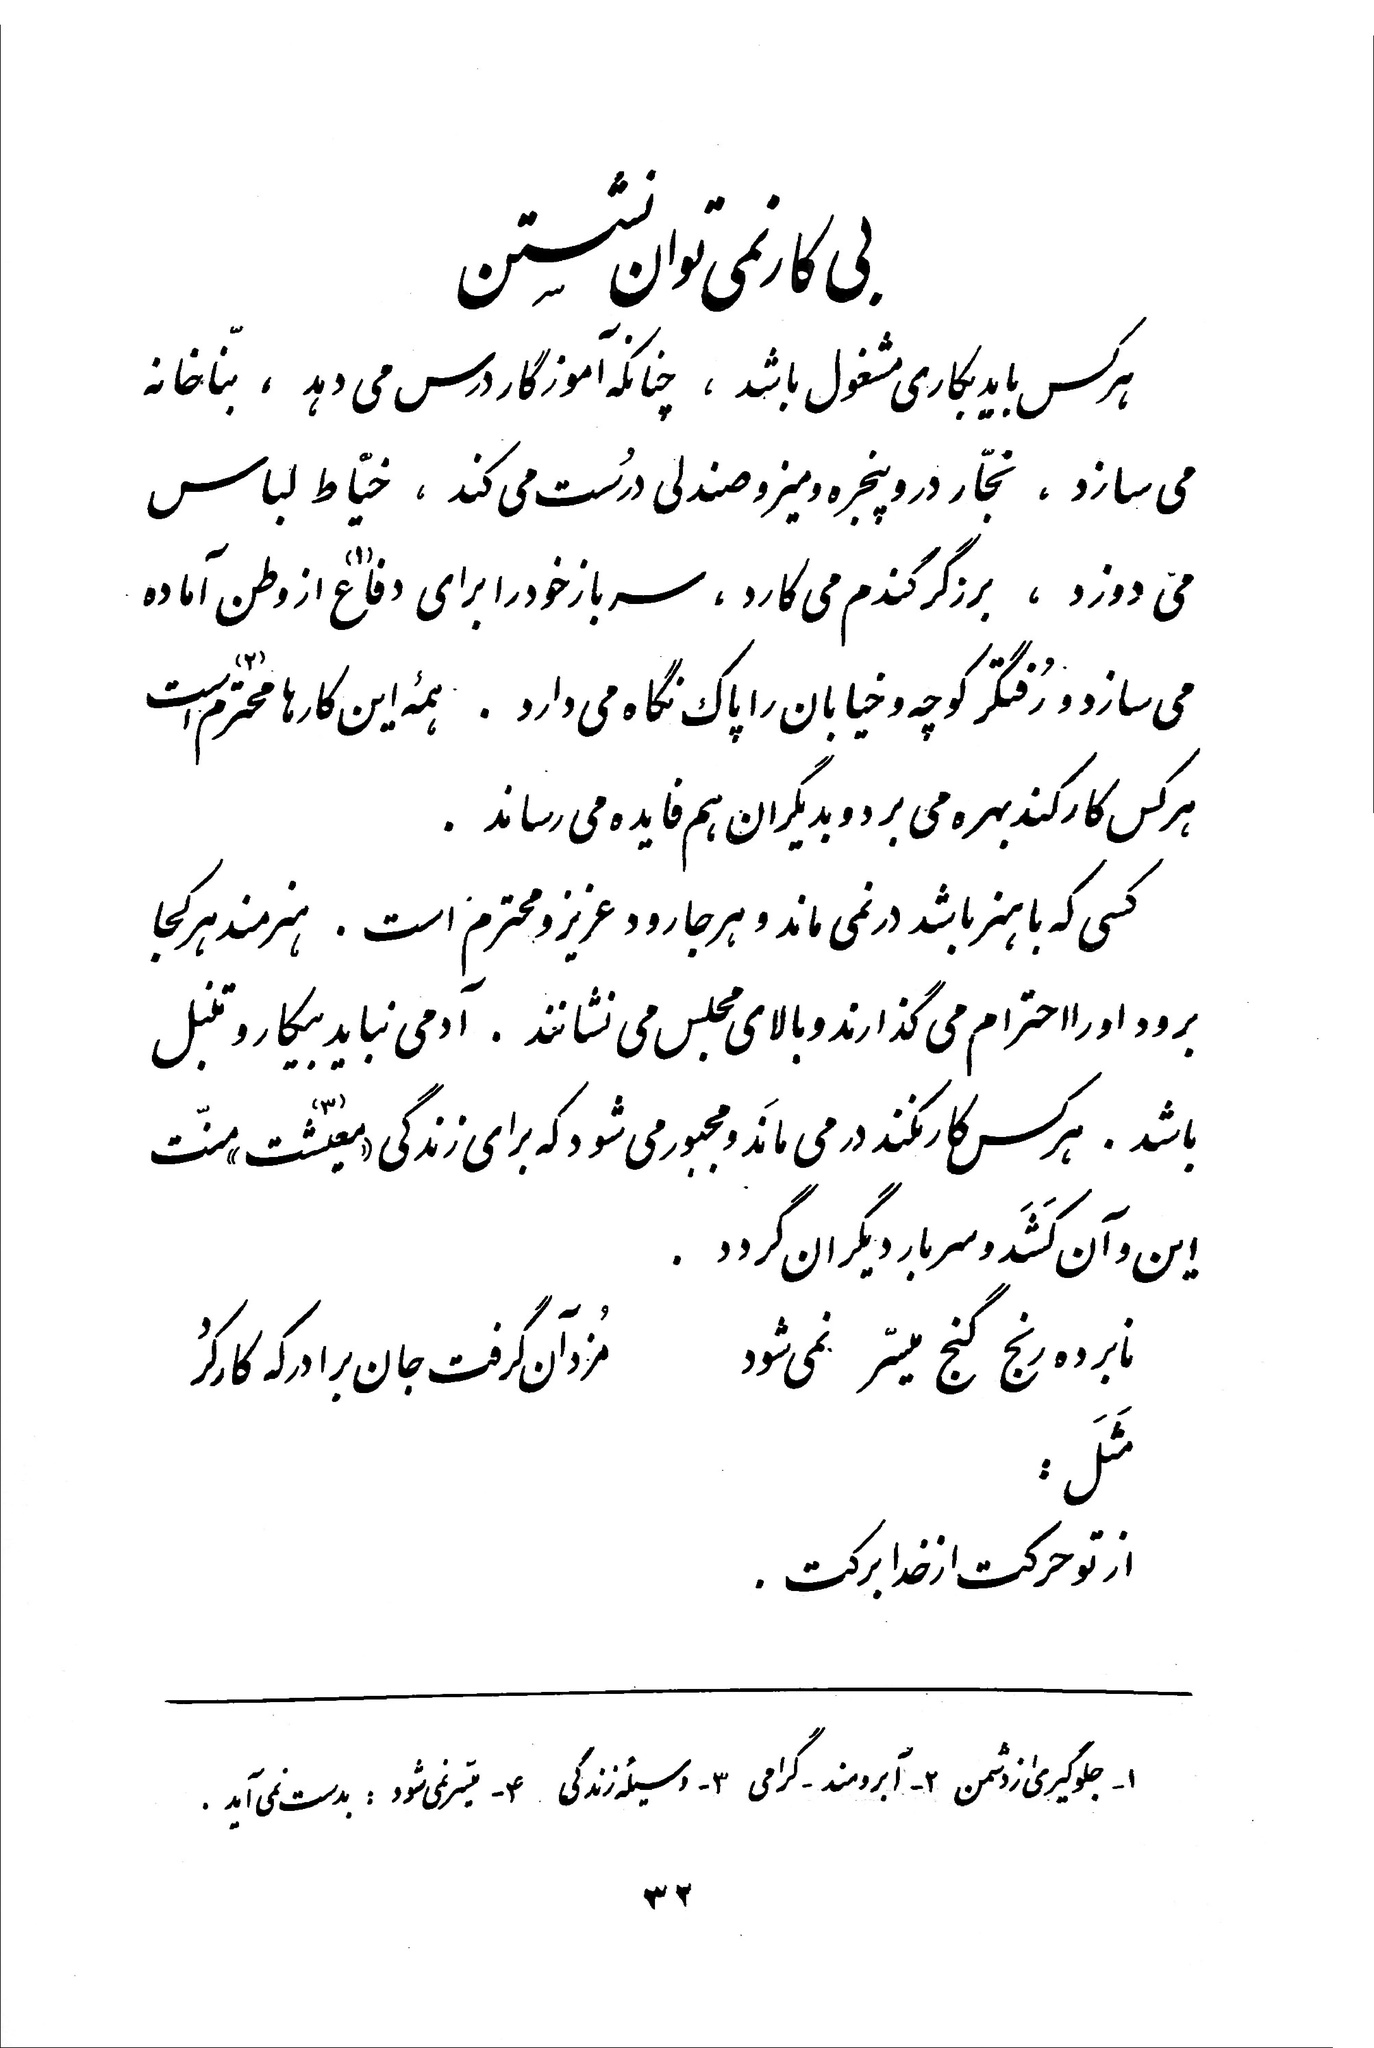 بی کار نمی توان نشستن
هرکس باید بکاری مشغول باشد ، چنانکه آموزگار درس می دهد ، بنّا خانه
می سازد ، نجّار در و پنجره و میز و صندلی دُرست می کند ، خیّاط لباس
می دوزد ، برزگر گندم می کارد ، سرباز خود را برای دفاع (۱) از وطن آماده
می سازد و رُفتگر کوچه و خیابان را پاک نگاه می دارد . همهٔ این کارها محترم (۲) است
هر کس کار کند بهره می برد و بدیگران هم فایده می رساند .
کسی که با هنر باشد در نمی ماند و هر جا رود عزیز و محترم است . هنرمند هر کجا
برود او را احترام می گذارند و بالای مجلس می نشانند . آدمی نباید بیکار و تنبل
باشد . هرکس کار نکند در می مانَد و مجبور می شود که برای زندگی «معیشت (۳)» منّت
این و آن کَشَد و سربار دیگران گردد .
نابرده رنج گنج میسّر نمی شود مُزد آن گرفت جان برادر که کار کرد
مَثَل :
از تو حرکت از خدا برکت .
۱- جلوگیری از دشمن ۲- آبرومند - گرامی ۳- وسیلهٔ زندگی ۴- میّسر نمی شود : بدست نمی آید .
۳۲